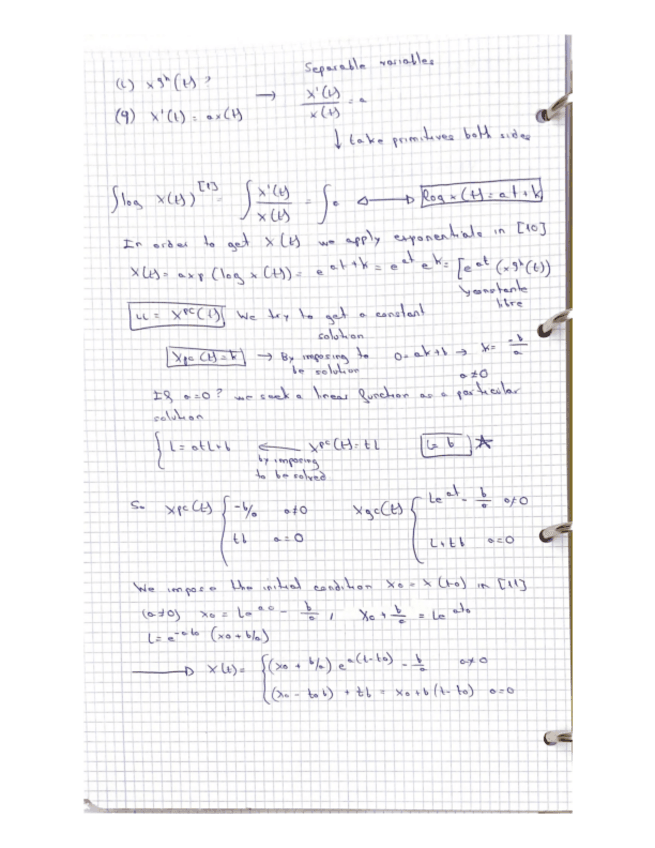 Separable variables
(i) x^gh(t)?
(9) x'(t) = ax(t) → x'(t)/x(t) = a
↓ take primitives both sides
∫log x(t) [1] = ∫ x'(t)/x(t) = ∫a ↔ log x(t) = at + k
In order to get x(t) we apply exponentials in [10]
x(t) = exp(log x(t)) = e^(at+k) = e^at e^k = [e^at (x^gh(t))
constante
libre
ii = x^pc(t) We try to get a constant
solution
Xpc(t) = k → By imposing to 0 = ak + b → k = -b/a
be solution a≠0
If a=0? we seek a linear function as a particular
solution
{ L = atL + b ← x^pc(t) = tL L = b ★
by imposing
to be solved
So xpc(t) { -b/a a≠0 xgc(t) { Le^at - b/a a≠0
tb a=0 L + tb a=0
We impose the initial condition x0 = x(t0) in [11]
(a≠0) x0 = Le^a0 - b/a , x0 + b/a = Le^at0
L = e^-at0 (x0 + b/a)
→ x(t) = { (x0 + b/a) e^a(t-t0) - b/a a≠0
(x0 - t0b) + tb = x0 + b(t - t0) a=0